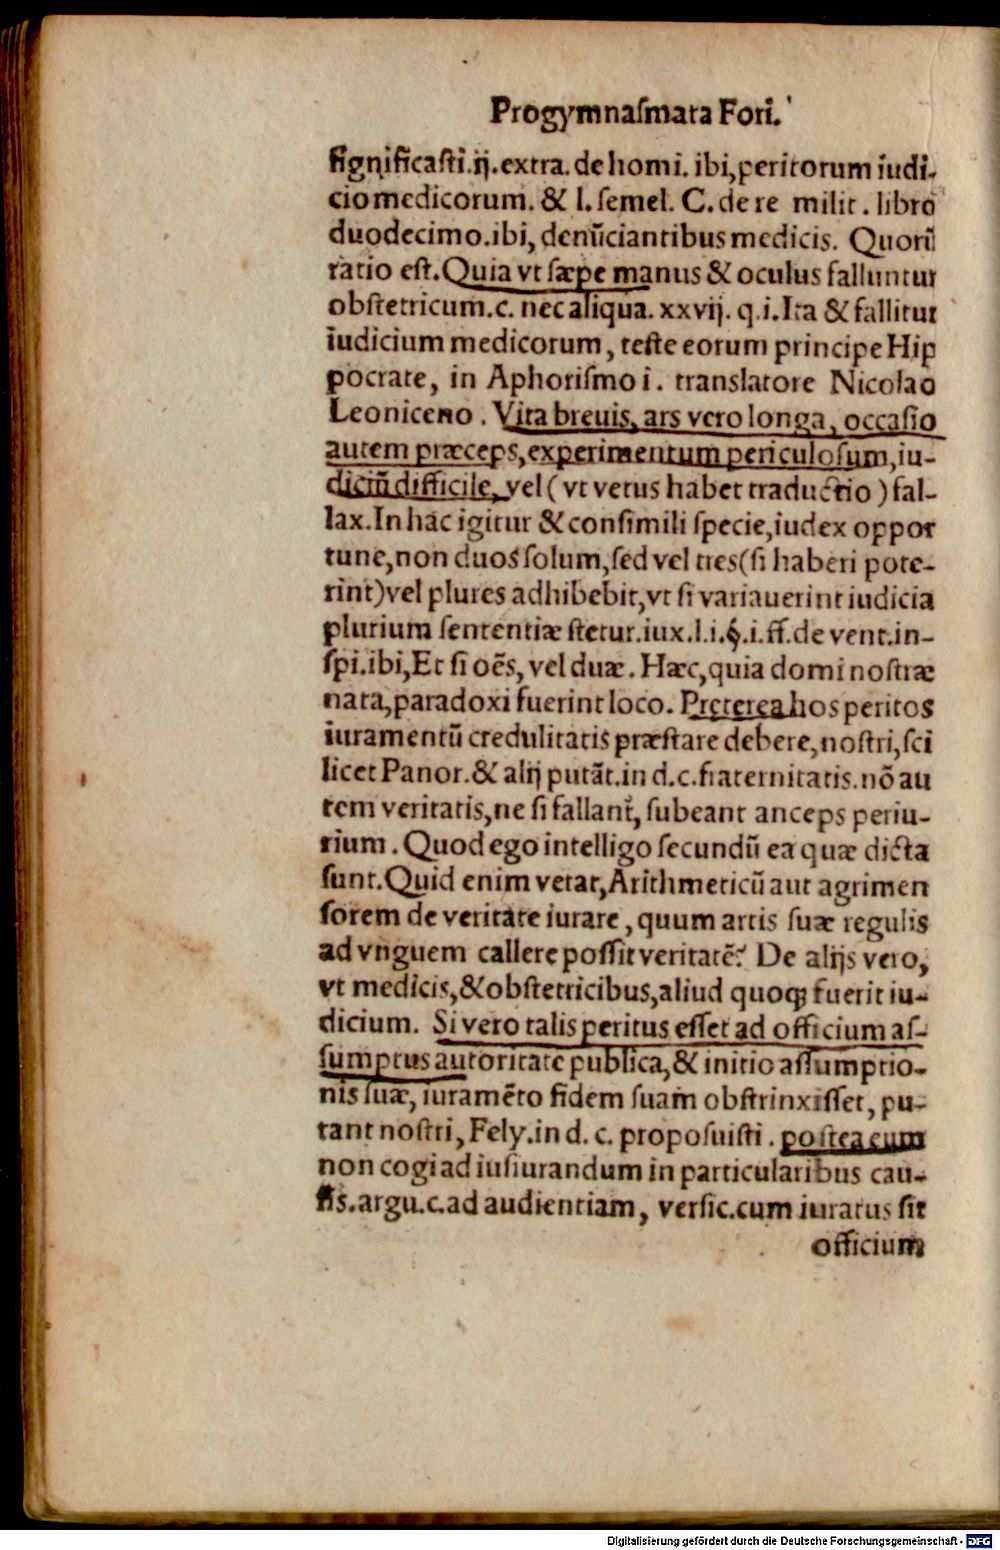 Progymnaſmata Fori.
ſignificaſti.ij.extra.de homi. ibi,peritorum iudi-
cio medicorum. & l. ſemel. C. de re milit. libro
duodecimo.ibi, denũciantibus medicis. Quorũ
ratio eſt.Quia vt ſæpe manus & oculus falluntur
obſtetricum.c. nec aliqua. xxvij. q.i.Ita & fallitur
iudicium medicorum, teſte eorum principe Hip
pocrate, in Aphoriſmo i. translatore Nicolao
Leoniceno. Vita breuis, ars vero longa, occaſio
autem præceps,experimentum periculoſum,iu-
diciũ difficile, vel (vt vetus habet traductio) fal-
lax.In hac igitur & conſimili ſpecie,iudex oppor
tune,non duos ſolum,ſed vel tres(ſi haberi pote-
rint)vel plures adhibebit,vt ſi variauerint iudicia
plurium ſententiæ ſtetur.iux.l.i.§.i.ff.de vent.in-
ſpi.ibi,Et ſi oẽs, vel duæ. Hæc,quia domi noſtræ
nata,paradoxi fuerint loco. Pręterea hos peritos
iuramentũ credulitatis præſtare debere,noſtri,ſci
licet Panor.& alij putãt.in d.c.fraternitatis.nõ au
tem veritatis,ne ſi fallant̃, ſubeant anceps periu-
rium. Quod ego intelligo ſecundũ ea quæ dicta
ſunt.Quid enim vetat,Arithmeticũ aut agrimen
ſorem de veritate iurare, quum artis ſuæ regulis
ad vnguem callere poſſit veritatẽ? De alijs vero,
vt medicis,& obſtetricibus,aliud quoq; fuerit iu-
dicium. Si vero talis peritus eſſet ad officium aſ-
ſumptus autoritate publica,& initio aſſumptio-
nis ſuæ, iuramẽto fidem ſuam obſtrinxiſſet, pu-
tant noſtri, Fely.in d. c. propoſuiſti. poſtea eum
non cogi ad iuſiurandum in particularibus cau-
ſis.argu.c.ad audientiam, verſic.cum iuratus ſit
officium
Digitalisierung gefördert durch die Deutsche Forschungsgemeinschaft - DFG